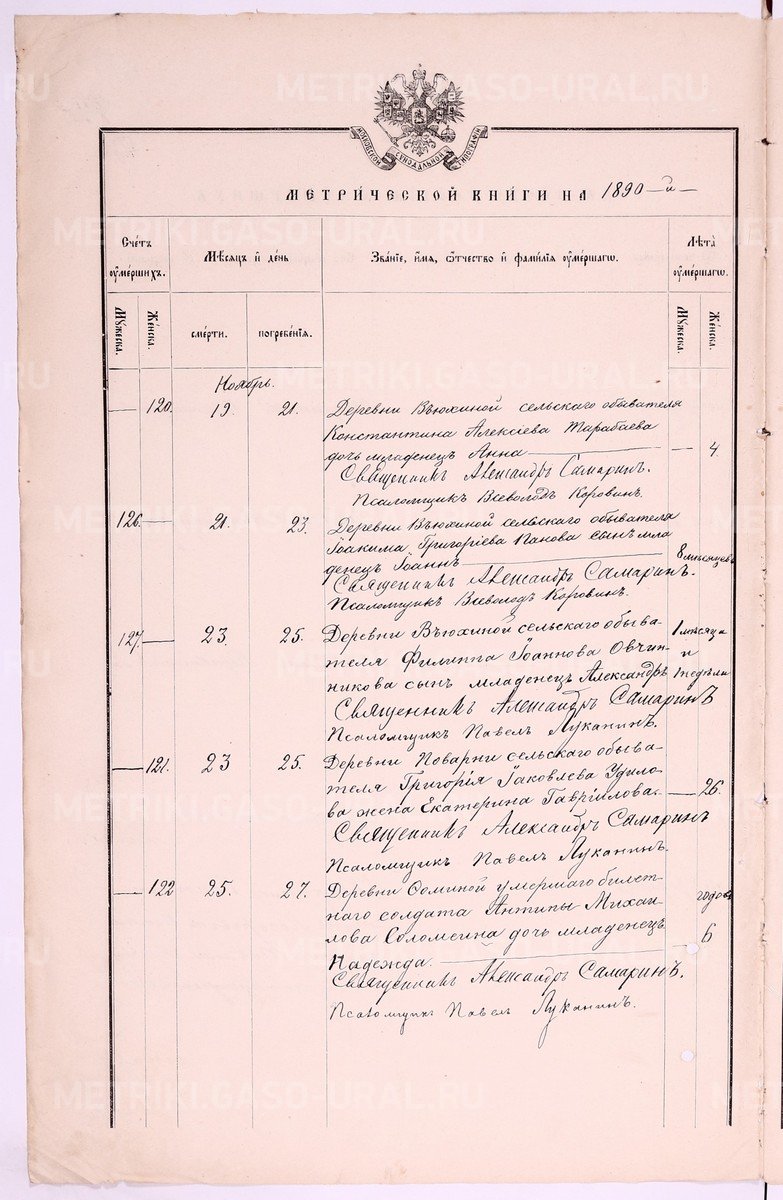 МОСКОВСКОЙ СѴНОДАЛЬНОЙ ТИПОГРАФІИ
МЕТРИ́ЧЕСКОЙ КНИ́ГИ НА 1890-й-
Сче́тъ оуме́ршихъ.
Мѣ́сяцъ и҆ де́нь
Зва́ніе, и҆́мя, ѻ҆́тчество и҆ фамилія оуме́ршагѡ.
Лѣта̀ оуме́ршагѡ.
Мꙋ́жеска.
Же́нска.
сме́рти.
погребе́нія.
Мꙋ́жеска.
Же́нска.
Ноябрь.
— 120. 19 21. Деревни Вьюхиной сельскаго обывателя
Константина Алексіева Тарабаева
дочь младенецъ Анна — — 4.
Священникъ Александръ Самаринъ.
Псаломщикъ Всеволодъ Коровинъ.
126. — 21. 23. Деревни Вьюхиной сельскаго обывателя
Іоакима Григоріева Панова сынъ мла
денецъ Іоаннъ — 8 мѣсяцевъ
Священникъ Александръ Самаринъ.
Псаломщикъ Всеволодъ Коровинъ.
127. — 23. 25. Деревни Вьюхиной сельскаго обыва- 1 мѣсяца
теля Филиппа Іоаннова Овчин- и
никова сынъ младенецъ Александръ 1 недѣли
Священникъ Александръ Самаринъ
Псаломщикъ Павелъ Луканинъ.
— 121. 23 25. Деревни Поварни сельскаго обыва-
теля Григорія Іаковлева Удило-
ва жена Екатерина Гавріилова. — 26.
Священникъ Александръ Самаринъ
Псаломщикъ Павелъ Луканинъ.
— 122 25. 27. Деревни Соминой умершаго билет- годовъ
наго солдата Антипы Михаи-
лова Соломеина дочь младенецъ 6
Надежда. —
Священникъ Александръ Самаринъ.
Псаломщикъ Павелъ Луканинъ.
METRIKI.GASO-URAL.RU